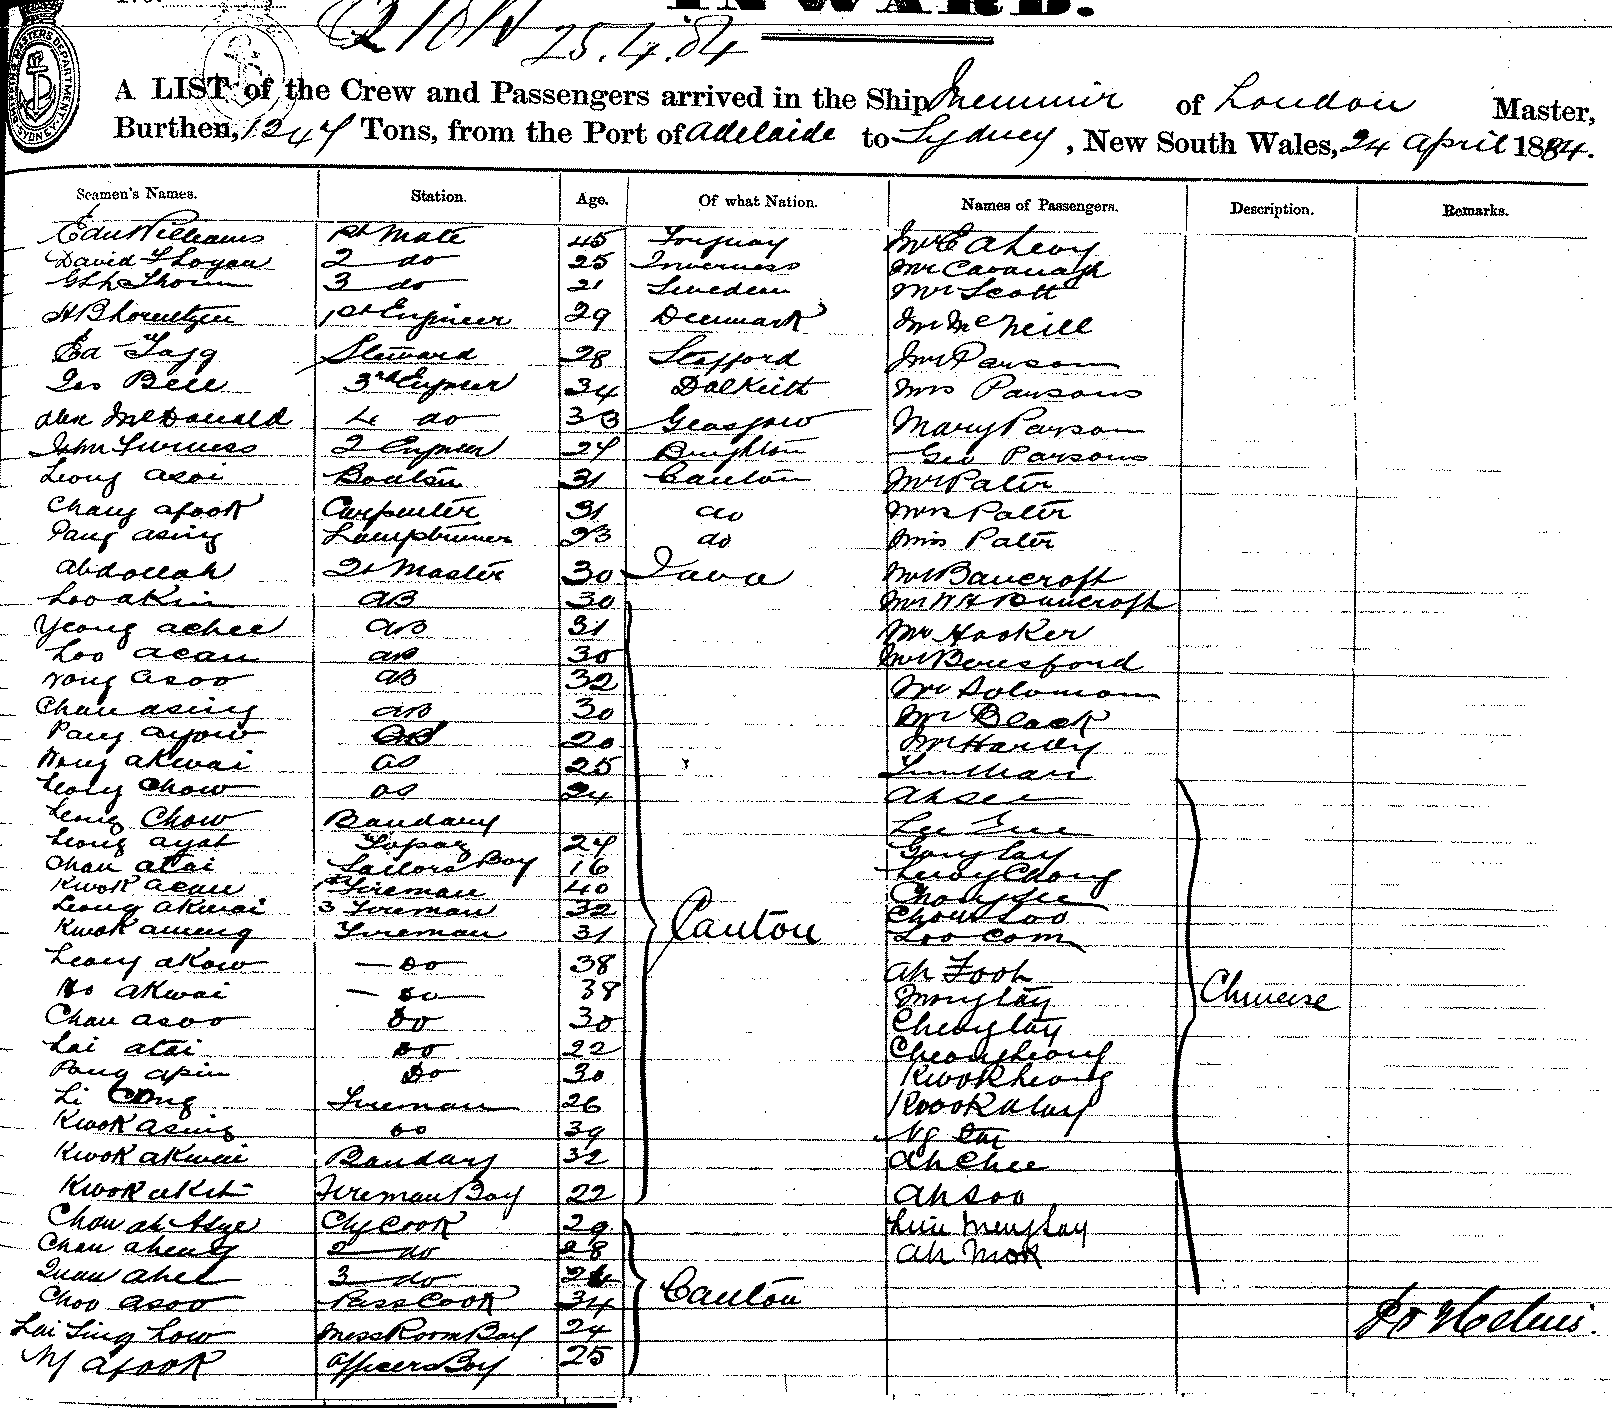 INWARD.
25.4.84
A LIST of the Crew and Passengers arrived in the Ship of London Master,
Burthen, 1247 Tons, from the Port of Adelaide to Sydney, New South Wales, 24 April 1884.
Seamen's Names. Station. Age. Of what Nation. Names of Passengers. Description. Remarks.
Edw Williams 1st Mate 45 Torquay Mr E A Levy
David Logan 2 do 25 Inverness Mr Cavanagh
Thorin 3 do 21 Sweden Mr Scott
H B Lorentzen 1st Engineer 29 Denmark Mr McNeill
Ed Tagg Steward 28 Stafford Mr Parson
Geo Bell 3rd Engineer 34 Dalkeith Mrs Parsons
Alex McDonald 4 do 33 Glasgow Mary Parson
John Furness 2 Engineer 24 Brighton Geo Parsons
Leong Asoi Boatsn 31 Canton Mr Pater
Chang Afook Carpenter 31 do Mrs Pater
Pang Asing Lamptrimmer 23 do Miss Pater
Abdollah Qr Master 30 Java Mr Bancroft
Loo Akin AB 30 Mr W H Bancroft
Yeong Achee AB 31 Mr Hooker
Loo Acan AB 30 Mr Beresford
Yong Asoo AB 32 Mr Solomon
Chan Asing AB 30 Mr Black
Pang Ayow 20 Mr Harvey
Wong Akwai OS 25
Leong Chow OS 24 Ah See
Leong Chow Bandary Lee
Leong Ayat Topaz 24 Gong Lay
Chan Atai Sailors Boy 16 Chong
Kwok Acan 1st Fireman 40
Leong Akwai 3 Fireman 32 Chow Loo
Kwok Ameng Fireman 31 Canton Loo Com
Leong Akow Do 38 Ah Fook
Ho Akwai Do 38 Mong Lay Chinese
Chan Asoo Do 30 Cheong Lay
Lai Atai Do 22 Cheong Leong
Pang Apin Do 30 Kwok Leong
Li Cong Fireman 26 Kwook Alay
Kwok Asing Do 39 Ng
Kwok Akwai Bandary 32 Ah Chee
Kwok Akit Fireman Boy 22 Ah Soo
Chan Ah Chf Cook 29 Lui Meng Lay
Chan Aheng 2 do 28 Ah Mok
Quan Ahee 3 do
Choo Asoo Pass Cook 34 Canton
Lai Sing Low Mess Room Boy 24
Ng Afook Officers Boy 25